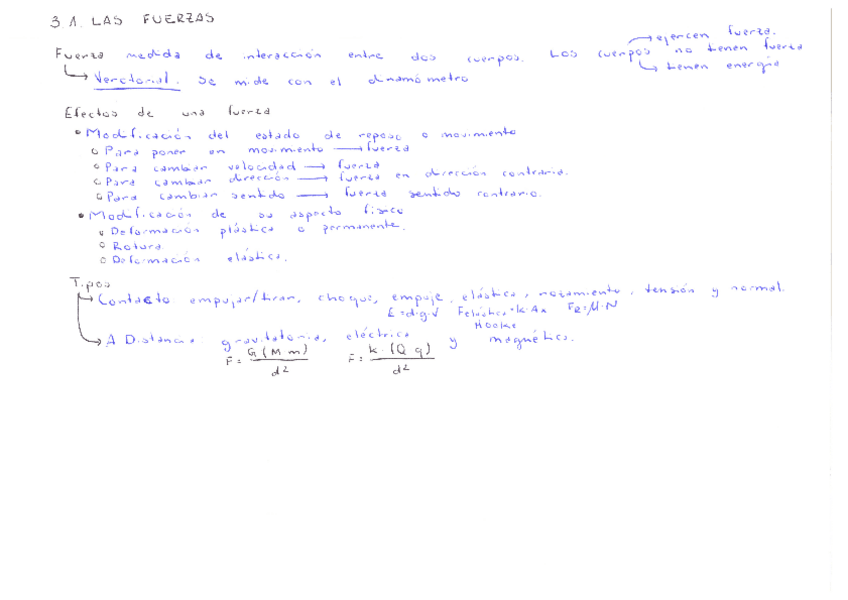 3.1. LAS FUERZAS
→ ejercen fuerza.
Fuerza medida de interacción entre dos cuerpos. Los cuerpos no tienen fuerza
↳ Verctorial. Se mide con el dinamómetro ↳ tienen energía
Efectos de una fuerza
• Modificación del estado de reposo o movimiento
o Para poner en movimiento → fuerza
o Para cambiar velocidad → fuerza
o Para cambiar dirección → fuerza en dirección contraria.
o Para cambiar sentido → fuerza sentido contrario.
• Modificación de su aspecto físico
o Deformación plástica o permanente.
o Rotura
o Deformación elástica.
Tipos
↳ Contacto empujar/tirar, choque, empuje, elástica, rozamiento, tensión y normal.
E=d·g·V Felástica=k·Δx FR=M·N
Hooke
↳ A Distancia: gravitatoria, eléctrica y magnética.
F= G(M m)/d² F= k·(Q q)/d²